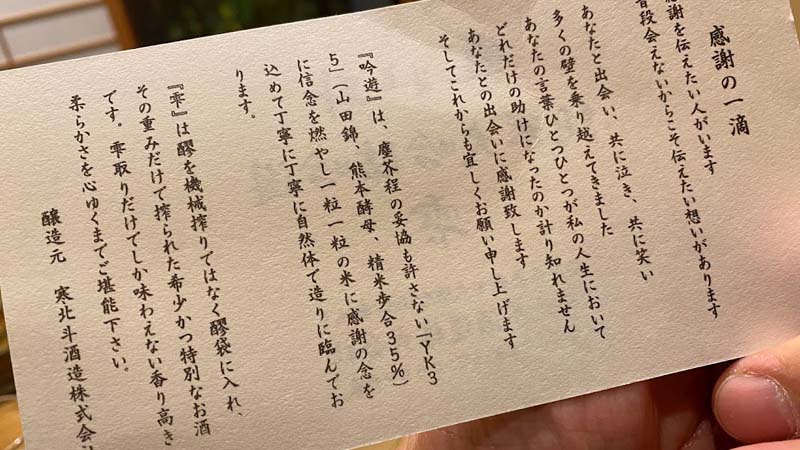 感謝の一滴
感謝を伝えたい人がいます
普段会えないからこそ伝えたい想いがあります
あなたと出会い、共に泣き、共に笑い
多くの壁を乗り越えてきました
あなたの言葉ひとつひとつが私の人生において
どれだけの助けになったのか計り知れません
あなたとの出会いに感謝致します
そしてこれからも宜しくお願い申し上げます
『吟遊』は、塵芥程の妥協も許さない「YK3
5」（山田錦、熊本酵母、精米歩合35%）
に信念を燃やし一粒一粒の米に感謝の念を
込めて丁寧に丁寧に自然体で造りに臨んでお
ります。
『雫』は醪を機械搾りではなく醪袋に入れ、
その重みだけで搾られた希少かつ特別なお酒
です。雫取りだけでしか味わえない香り高き
柔らかさを心ゆくまでご堪能下さい。
醸造元　寒北斗酒造株式会社